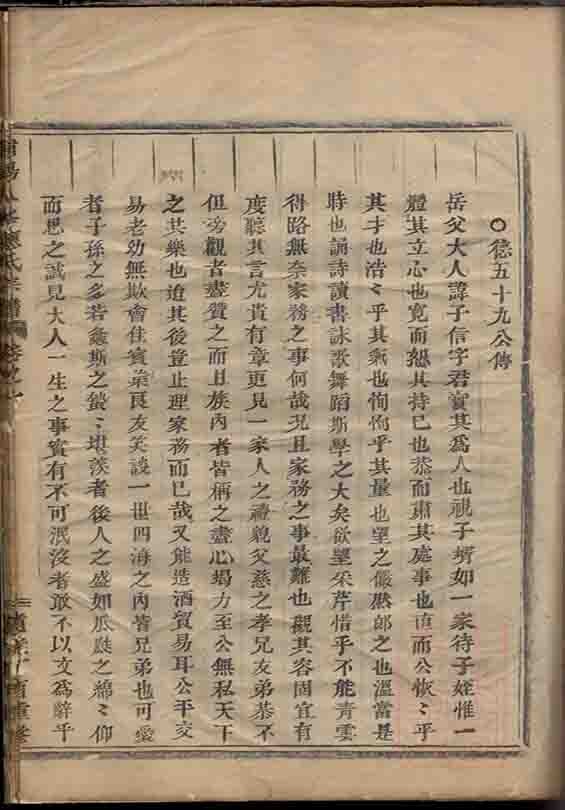 ○德五十九公傳
岳父大人諱子信字君實其為人也視子壻如一家待子姪惟一
體其立心也寬而恕其持己也恭而肅其處事也直而公恢〻乎
其才也浩〻乎其氣也恂恂乎其量也望之儼然郎之也溫當是
時也誦詩讀書詠歌舞蹈斯學之大矣欲望采芹惜乎不能青雲
得路無奈家務之事何哉况且家務之事最難也觀其容固宜有
度聽其言尤貴有章更見一家人之禮貌父慈之孝兄友弟恭不
但旁觀者盡贊之而且族內者皆稱之盡心竭力至公無私天下
之其樂也迨其後豈止理家務而已哉又能造酒貿易耳公平交
易老幼無欺會佳賓萊良友笑談一世四海之內皆兄弟也可愛
者子孫之多若螽斯之蟄〻堪羨者後人之盛如瓜瓞之綿〻仰
而思之誠見大人一生之事實有不可泯沒者敢不以文為辭乎
氏宗譜